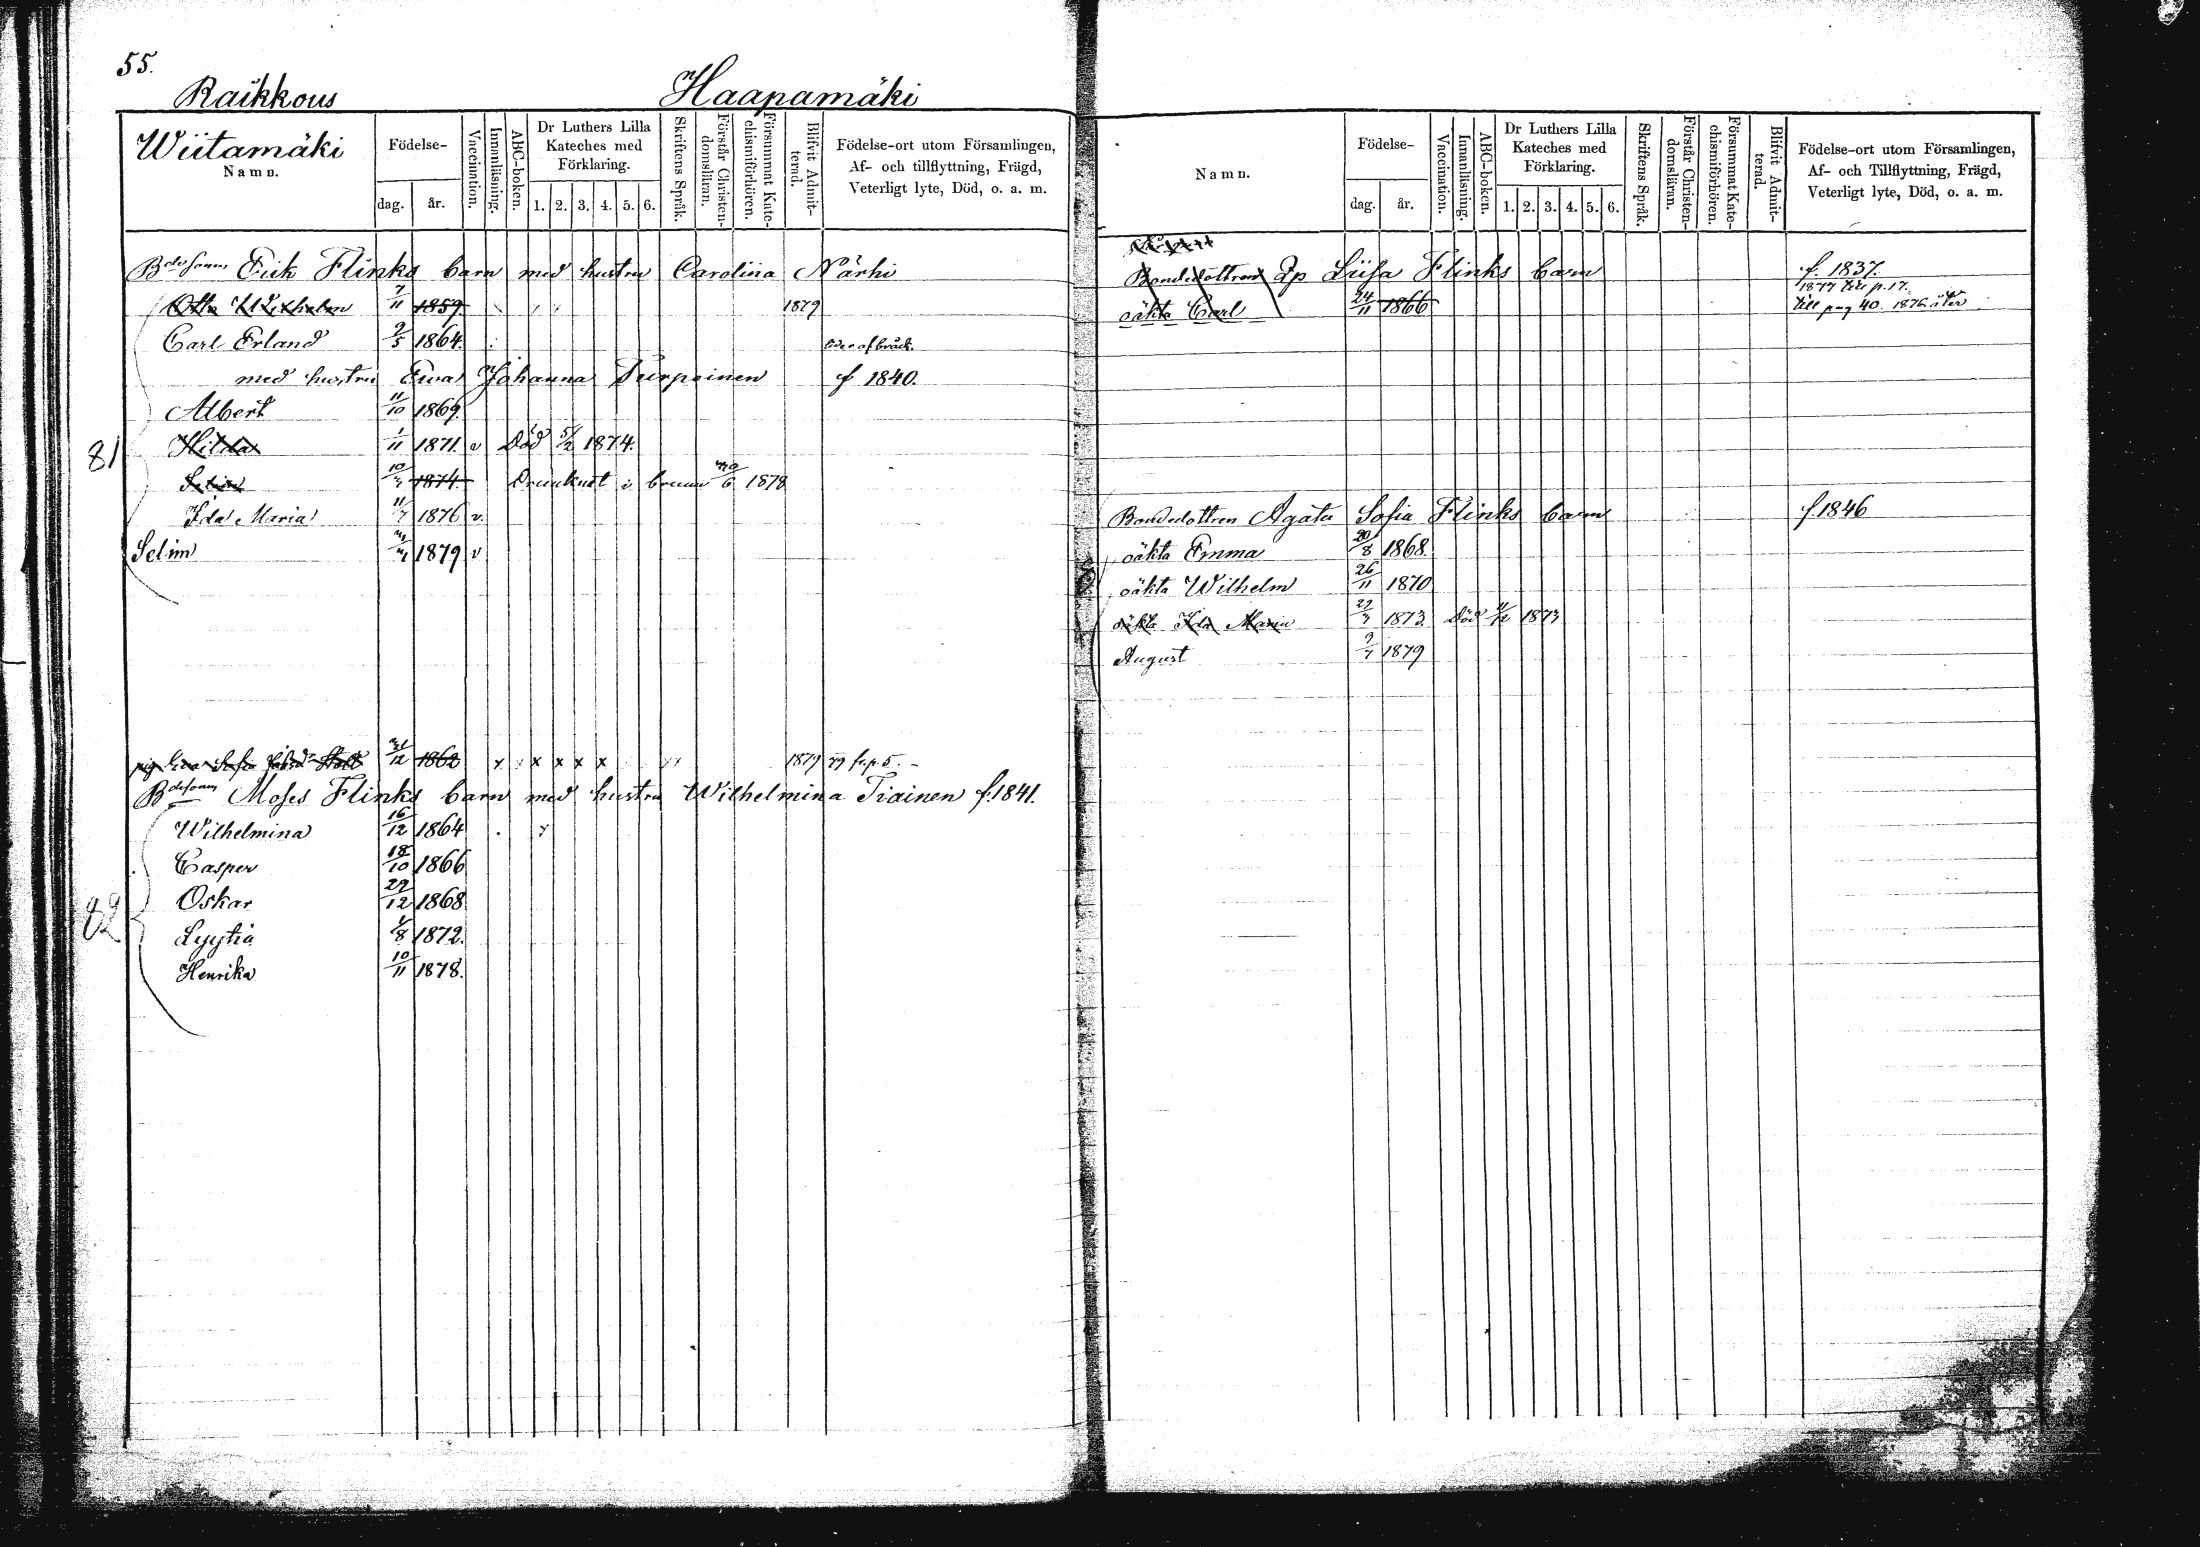 55.
Raikkous Haapamäki
Wiitamäki
Namn.
Födelse-
dag. år.
Vaccination.
Innanläsning.
ABC-boken.
Dr Luthers Lilla Kateches med Förklaring.
1. 2. 3. 4. 5. 6.
Skriftens Språk.
Förstår Christendomsläran.
Försummat Katechismiförhören.
Blifvit Admitterad.
Födelse-ort utom Församlingen, Af- och tillflyttning, Frägd, Veterligt lyte, Död, o. a. m.
Bdesonen Erik Flinks barn med hustru Carolina Närhi
Otto Wilhelm 7/11 1859 1879
Carl Erland 9/5 1864.
med hustru Ewa Johanna Turpeinen f 1840.
Albert 11/10 1869.
81
Hilda 1/11 1871. v Död 5/2 1874.
10 1874. Drunknat i brunn 1878
Ida Maria 11/7 1876 v.
Selim 1879 v
31/12 1862 x x x x x x 1879 79 fr. p. 5.
Bdesonen Moses Flinks barn med hustru Wilhelmina Tiainen f. 1841.
Wilhelmina 16/12 1864
Casper 18/10 1866
Oskar 29/12 1868
82
Lyytia 1/8 1872.
Henrika 10/11 1878.
Namn.
Födelse-
dag. år.
Vaccination.
Innanläsning.
ABC-boken.
Dr Luthers Lilla Kateches med Förklaring.
1. 2. 3. 4. 5. 6.
Skriftens Språk.
Förstår Christendomsläran.
Försummat Katechismiförhören.
Blifvit Admitterad.
Födelse-ort utom Församlingen, Af- och Tillflyttning, Frägd, Veterligt lyte, Död, o. a. m.
Bondedottren Liisa Flinks barn f. 1837.
1877 till p. 17.
oäkta Carl 24/11 1866 till pag 40. 1876 åter
Bondedottren Agata Sofia Flinks barn f. 1846
oäkta Emma 20/8 1868.
oäkta Wilhelm 26/11 1870
oäkta Ida Maria 29/3 1873. Död 1873
August 9/7 1879